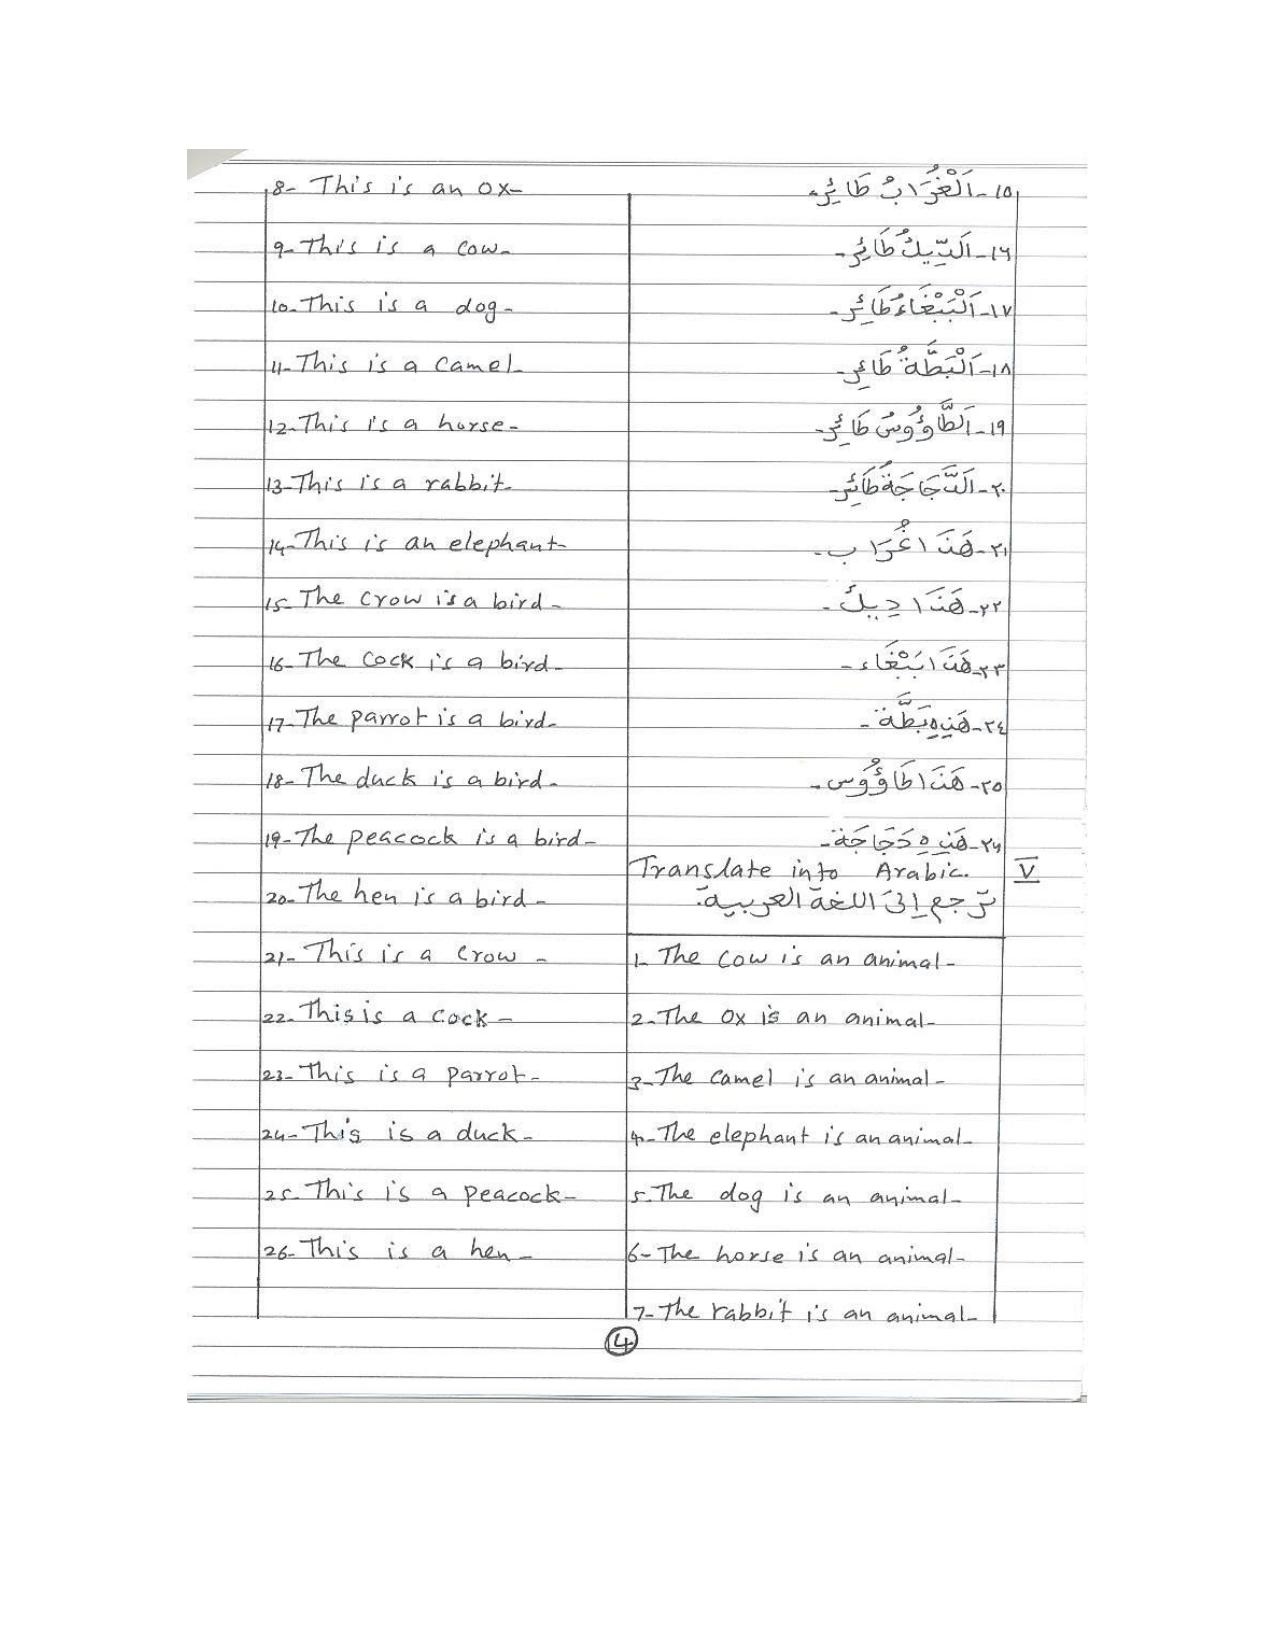 8- This is an ox-
9- This is a cow-
10- This is a dog-
11- This is a camel-
12- This is a horse-
13- This is a rabbit-
14- This is an elephant-
15- The crow is a bird-
16- The cock is a bird-
17- The parrot is a bird-
18- The duck is a bird-
19- The peacock is a bird-
20- The hen is a bird-
21- This is a crow-
22- This is a cock-
23- This is a parrot-
24- This is a duck-
25- This is a peacock-
26- This is a hen-
١٥- اَلْغُرَابُ طَائِر-
١٦- اَلدِّيكُ طَائِر-
١٧- اَلْبَبْغَاءُ طَائِر-
١٨- اَلْبَطَّةُ طَائِر-
١٩- اَلطَّاؤُوسُ طَائِر-
٢٠- اَلدَّجَاجَةُ طَائِر-
٢١- هَذَا غُرَاب-
٢٢- هَذَا دِيك-
٢٣- هَذَا بَبْغَاء-
٢٤- هَذِهِ بَطَّة-
٢٥- هَذَا طَاؤُوس-
٢٦- هَذِهِ دَجَاجَة-
Translate into Arabic. V
ترجم إلى اللغة العربية:
1- The cow is an animal-
2- The ox is an animal-
3- The camel is an animal-
4- The elephant is an animal-
5- The dog is an animal-
6- The horse is an animal-
7- The rabbit is an animal-
4